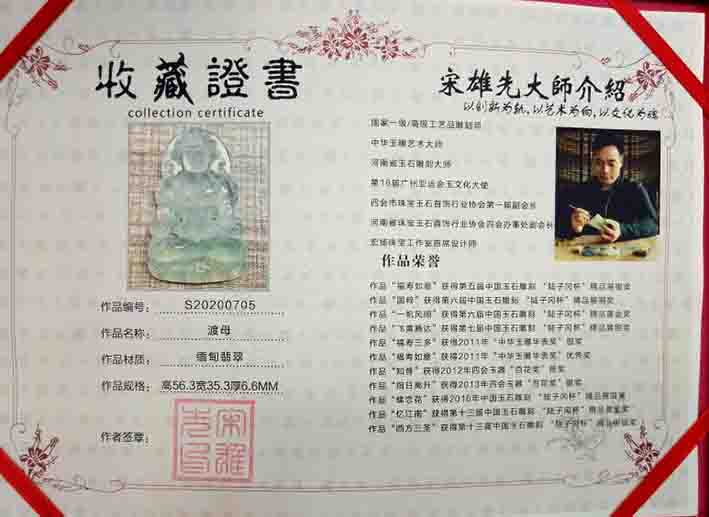 收藏證書
collection certificate
作品编号：
S20200705
作品名称：
渡母
作品材质：
缅甸翡翠
作品规格：
高56.3宽35.3厚6.6MM
作者签章：
宋雄
先印
宋雄先大師介紹
以创新为轨，以艺术为向，以文化为魂
国家一级/高级工艺品雕刻师
中华玉雕艺术大师
河南省玉石雕刻大师
第16届广州亚运会玉文化大使
四会市珠宝玉石首饰行业协会第一届副会长
河南省珠宝玉石首饰行业协会四会办事处副会长
珠宝工作室首席设计师
作品荣誉
作品“福寿如意”获得第五届中国玉石雕刻 “陆子冈杯”精品银奖
作品“国粹”获得第六届中国玉石雕刻 “陆子冈杯”精品展铜奖
作品“一帆风顺”获得第六届中国玉石雕刻 “陆子冈杯”精品展金奖
作品“飞黄腾达”获得第七届中国玉石雕刻 “陆子冈杯”精品展银奖
作品“福寿三多”获得2011年“中华玉雕华表奖”银奖
作品“福寿如意”获得2011年“中华玉雕华表奖”优秀奖
作品“知尊”获得2012年四会玉器“百花奖”银奖
作品“指日高升”获得2013年四会玉器“百花奖”银奖
作品“蝶恋花”获得2016年中国玉石雕刻 “陆子冈杯”精品展铜奖
作品“忆江南”获得第十三届中国玉石雕刻 “陆子冈杯”精品展金奖
作品“西方三圣”获得第十三届中国玉石雕刻 “陆子冈杯”精品展银奖